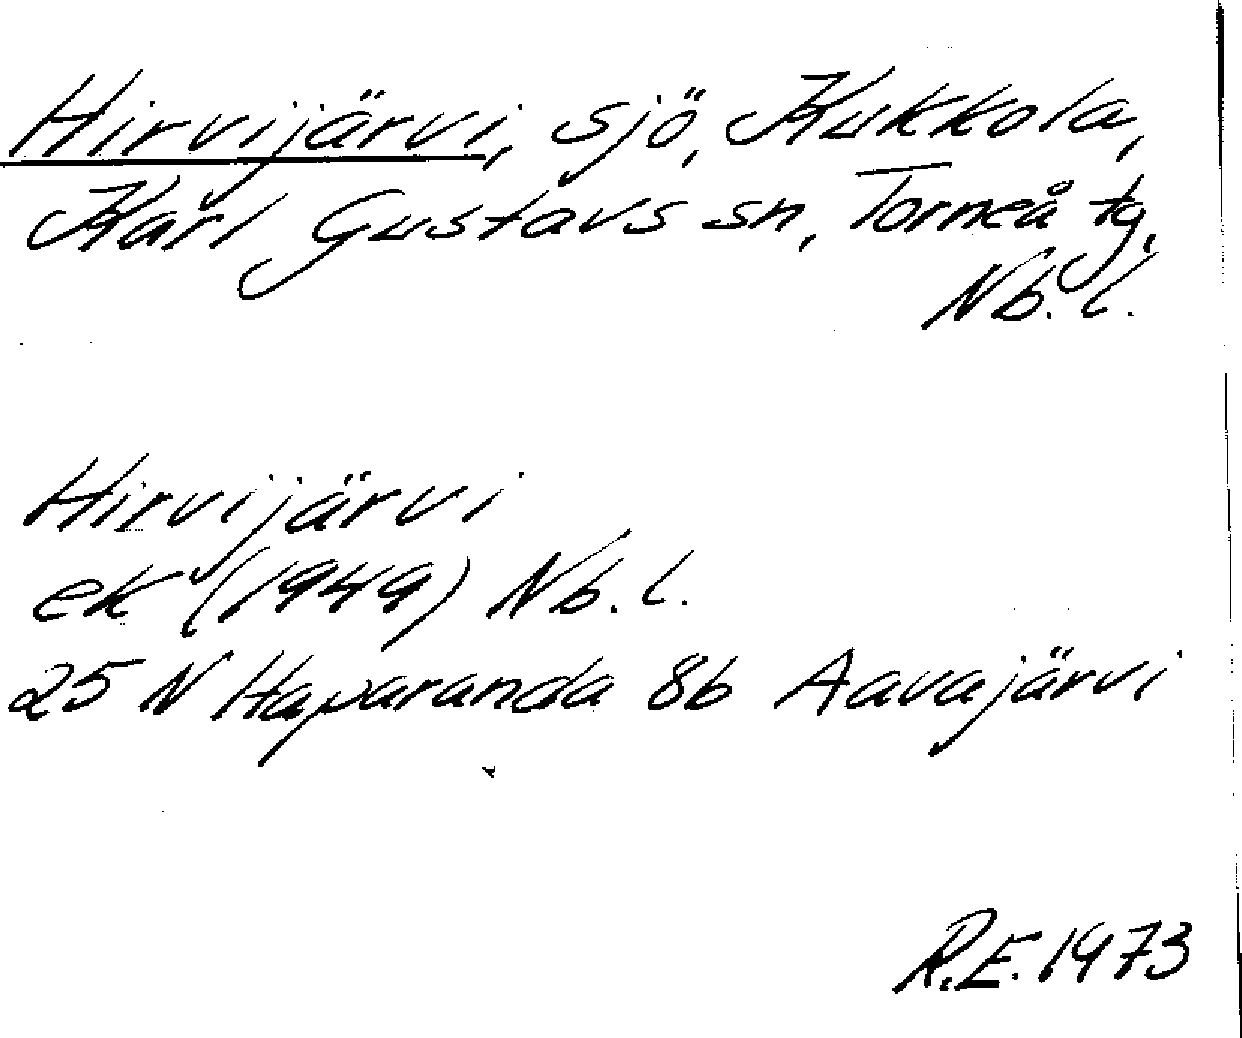 Hirvijärvi, sjö, Kukkola,
Karl Gustavs sn, Torneå tg,
Nb. l.
Hirvijärvi
ek (1949) Nb. l.
25 N Haparanda 8b Aavajärvi
R.E. 1973